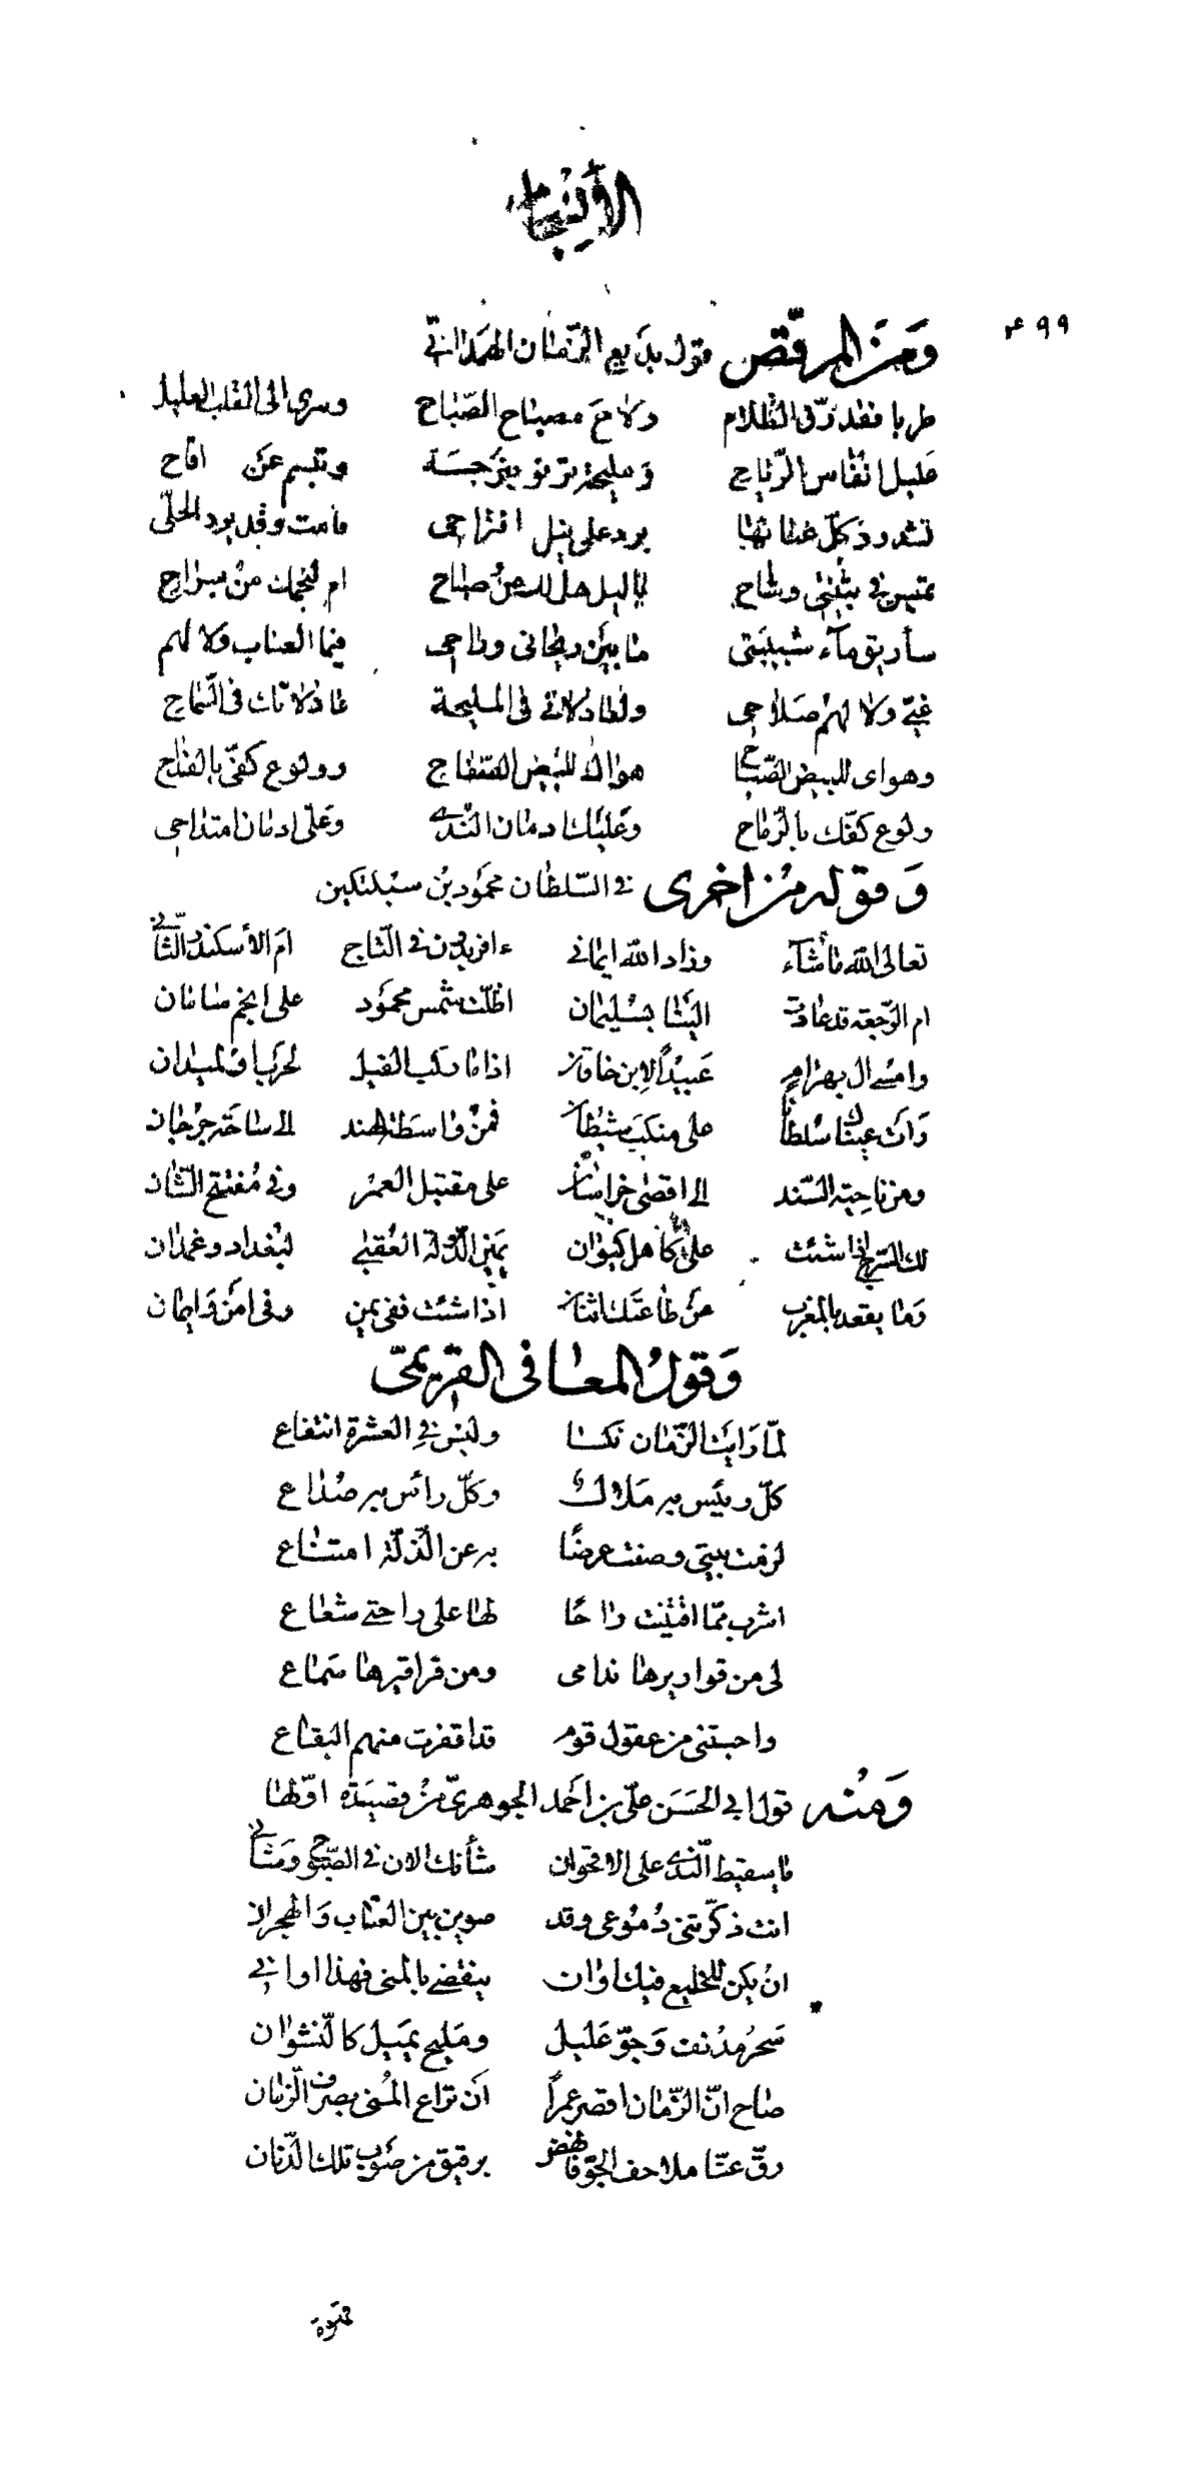 الأدبيات
٤٩٩
ومن المرقص قول بديع الزمان الهمذاني
طربا فقد رق الظلام ولاح مصباح الصّباح وسرى الى القلب العليل
عليل انفاس الرّياح ومليحة ترنو بنرجسة وتبسم عن اقاح
تشدو وكلّ غنائها برد على نيل اقتراحى قامت وقد برد الحلّى
تميس فى ثنى وشاح ياليل هل لك من صباح ام لنجمك من براح
سأريق مآء شبيبتى ما بين ريحانى وراحى فيما العتاب ولا لهم
غيّى ولا لهم صلاحى ولعاذلاتى فى المليحة عاذلاتك فى السّماح
وهواى للبيض الصّباح هواك للبيض الصفاح وولوع كفّى بالقداح
ولوع كفّك بالرّماح وعليك ادمان النّدى وعلى ادمان امتداحى
وقوله من اخرى فى السّلطان محمود بن سبكتكين
تعالى الله ما شآء وزاد الله ايمانى ءافريدون فى التّاج ام الأسكندر الثّانى
ام الرّجعة قد عادت الينا بسليمان اظلّت شمس محمود على انجم سامان
وامسى ال بهرام عبيدًا لابن خاقان اذا ما ركب الفيل لحرب او لميدان
رأت عيناك سلطانا على منكب شيطان فمن واسطة الهند الى ساحة جرجان
ومن ناحية السّند الى اقصى خراسان على مقتبل العمر وفى مفتتح الشّان
لك السّرج اذا شئت على كاهل كيوان يمين الدّولة العقبى لبغداد وغمدان
وما يقعد بالمغرب عن طاعتك اثنان اذا شئت ففى يمن وفى امن وايمان
وقول المعافى القزيمىّ
لمّا رأيت الزّمان نكسا وليس فى العشرة انتفاع
كلّ رئيس به ملال وكلّ رأس به صداع
لزمت بيتى وصنت عرضًا به عن الذّلّة امتناع
اشرب ممّا اقتنيت راحًا لها على راحتى شعاع
لى من قواريرها ندامى ومن قراقيرها سماع
واجتنى من عقول قوم قد اقفرت منهم البقاع
ومنه قول ابى الحسن علىّ بن احمد الجوهرىّ من قصيدة اوّلها
ياسقيط النّدى على الاقحوان شأنك الان فى الصّبوح وشانى
انت ذكّرتنى دموعى وقد صوبن بين العتاب والهجران
ان يكن للخليع فيك اوان ينقضى بالمنى فهذا اوانى
سحر مدنف وجوّ عليل ومليح يميل كالنّشوان
صاح انّ الزّمان اقصر عمرًا ان تراع المنى بصرف الزّمان
رقّ عنّا ملاحف الجوّ فانهض برقيق من صوب تلك الدّنان
قهوة